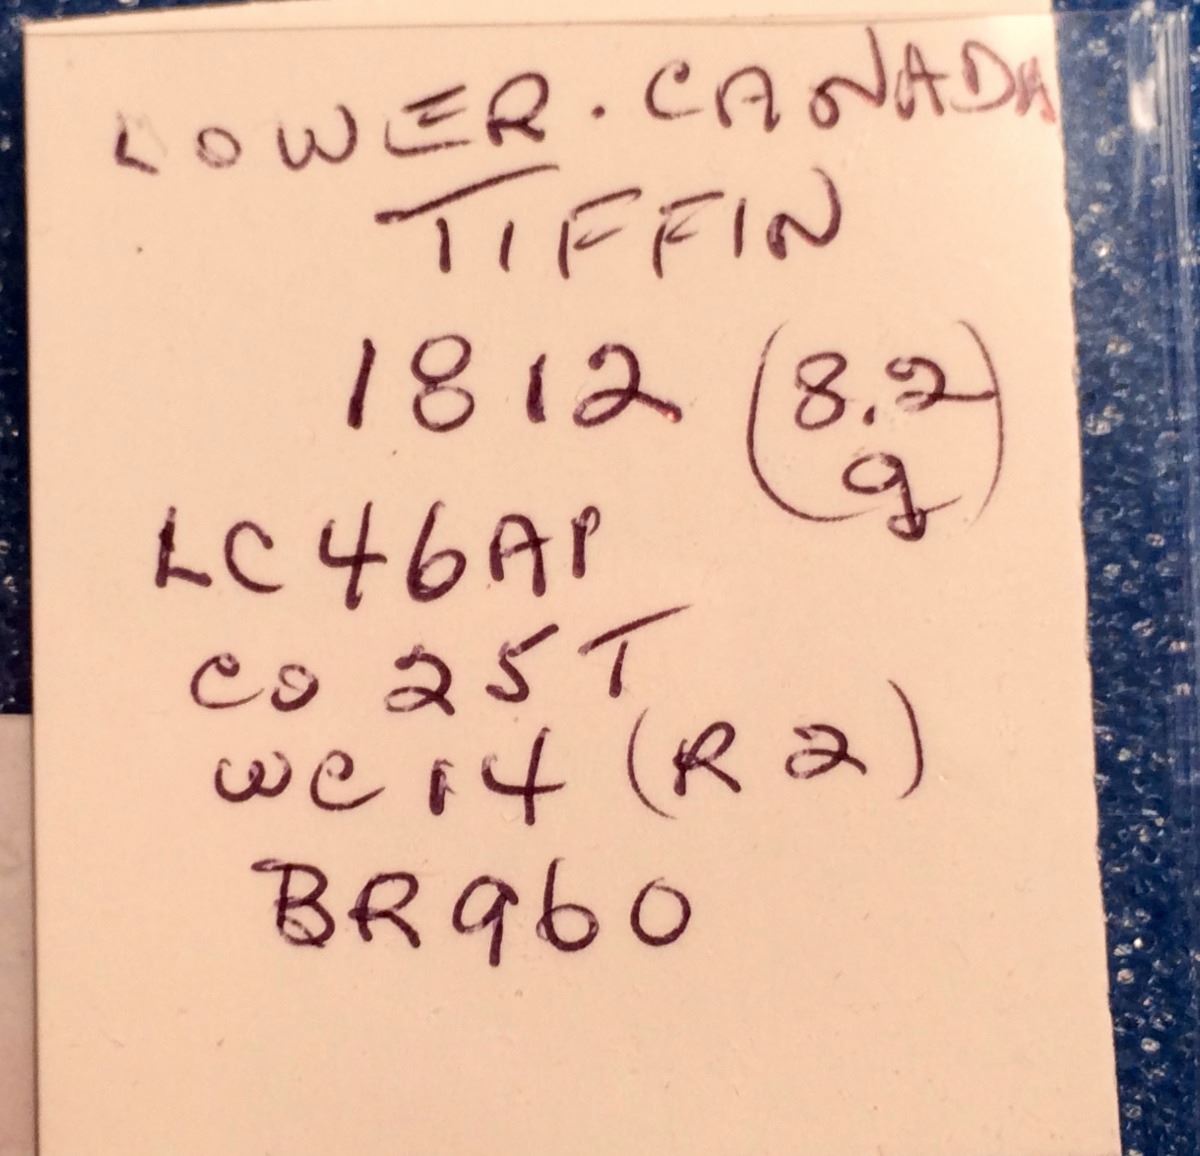 LOWER. CANADA
TIFFIN
1812 (8.2 g)
LC 46AP
CO 25T
WC 14 (R2)
BR 960